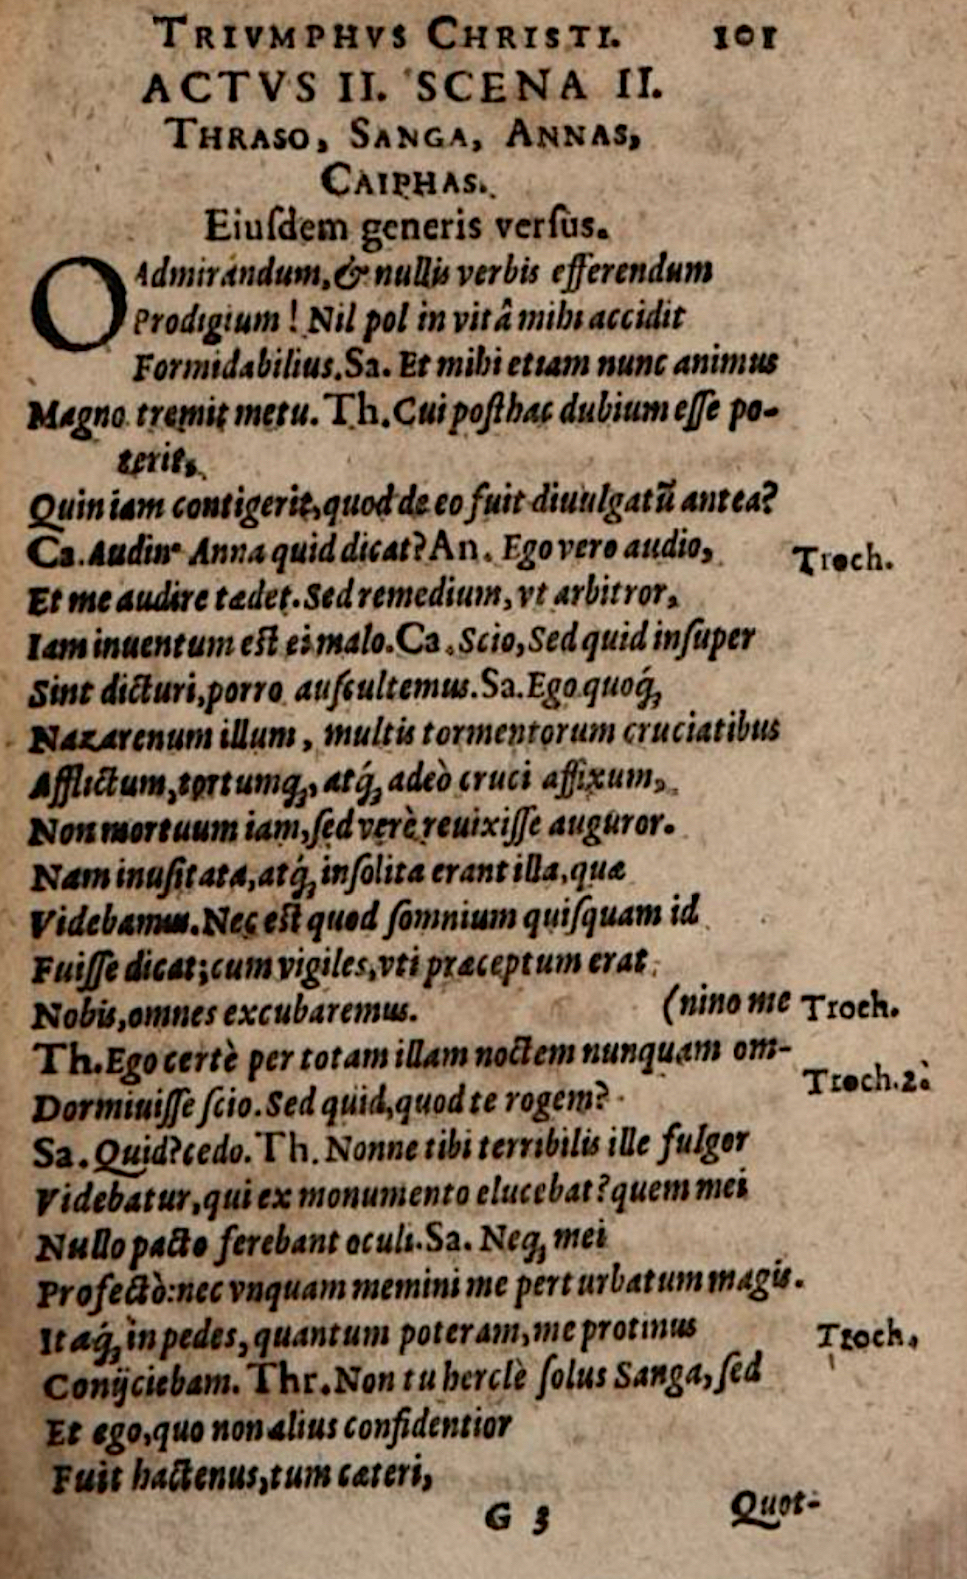 TRIVMPHVS CHRISTI. 101
ACTVS II. SCENA II.
THRASO, SANGA, ANNAS,
CAIPHAS.
Eiuſdem generis verſus.
O Admirandum, & nullis verbis efferendum
Prodigium ! Nil pol in vitâ mihi accidit
Formidabilius. Sa. Et mihi etiam nunc animus
Magno tremit metu. Th. Cui poſthac dubium eſſe po-
terit,
Quin iam contigerit, quod de eo fuit diuulgatũ antea?
Ca. Audin' Anna quid dicat? An. Ego vero audio, Troch.
Et me audire tædet. Sed remedium, vt arbitror,
Iam inuentum eſt ei malo. Ca. Scio, Sed quid inſuper
Sint dicturi, porro auſcultemus. Sa. Ego quoq́;
Nazarenum illum, multis tormentorum cruciatibus
Afflictum, tortumq;, atq́; adeò cruci affixum,
Non mortuum iam, ſed verè reuixiſſe auguror.
Nam inuſitata, atq́; inſolita erant illa, quæ
Videbamus. Nec eſt quod ſomnium quiſquam id
Fuiſſe dicat; cum vigiles, vti præceptum erat
Nobis, omnes excubaremus. (nino me Troch.
Th. Ego certè per totam illam noctem nunquam om-
Troch. 2.
Dormiuiſſe ſcio. Sed quid, quod te rogem?
Sa. Quid? cedo. Th. Nonne tibi terribilis ille fulgor
Videbatur, qui ex monumento elucebat? quem mei
Nullo pacto ferebant oculi. Sa. Neq; mei
Profectò: nec vnquam memini me perturbatum magis.
Itaq́; in pedes, quantum poteram, me protinus Troch.
Conijciebam. Thr. Non tu herclè ſolus Sanga, ſed
Et ego, quo non alius confidentior
Fuit hactenus, tum cæteri,
G 3 Quot-